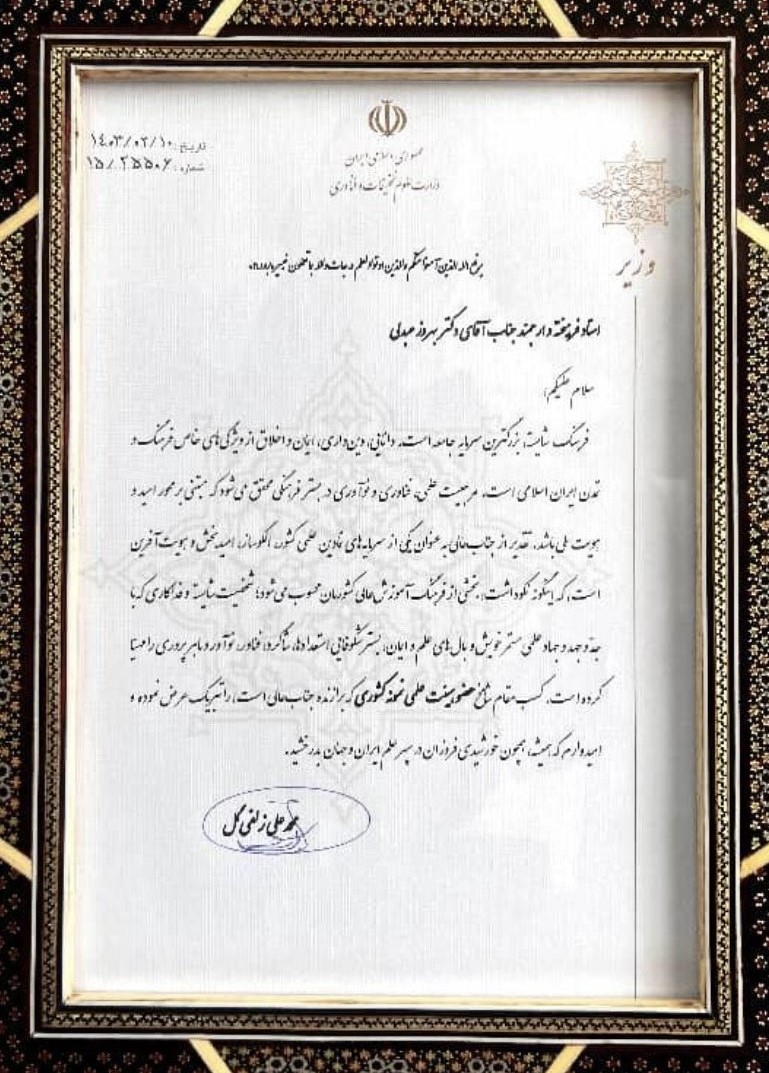 تاریخ: ۱۴۰۳/۰۲/۱۰
شماره: ۱۵/۲۵۵۰۶
جمهوری اسلامی ایران
وزارت علوم تحقیقات و فناوری
وزیر
یرفع الله الذین آمنوا منکم والذین اوتوا العلم درجات والله بما تعملون خبیر
استاد فرهیخته و ارجمند جناب آقای دکتر بهروز عبدلی
سلام علیکم؛
فرهنگ شایسته، بزرگترین سرمایه جامعه است. دانایی، دین‌داری، ایمان و اخلاق از ویژگی‌های خاص فرهنگ و
تمدن ایران اسلامی است. مرجعیت علمی، فناوری و نوآوری در بستر فرهنگی محقق می‌شود که مبتنی بر محور امید و
هویت ملی باشد. تقدیر از جناب‌عالی به عنوان یکی از سرمایه‌های نمادین علمی کشور، الگوساز، امیدبخش و هویت آفرین
است، که اینگونه نکوداشت، بخشی از فرهنگ آموزش عالی کشورمان محسوب می‌شود؛ شخصیت شایسته و فداکاری که با
جدّ و جهد و جهاد علمی مستمر خویش و بال‌های علم و ایمان، بستر شکوفایی استعدادها، شاگرد، فناور، نوآور و ماهرپروری را مهیّا
کرده است. کسب مقام شامخ عضو هیئت علمی نمونه کشوری که برازنده جناب‌عالی است، را تبریک عرض نموده و
امیدوارم که همیشه، همچون خورشیدی فروزان در سپهر علم ایران و جهان بدرخشید.
محمد علی زلفی گل